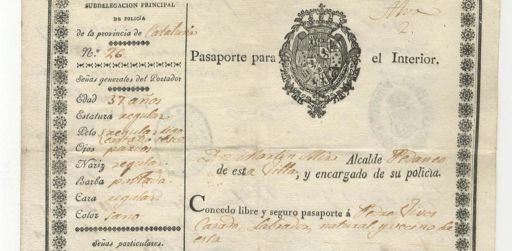 SUBDELEGACION PRINCIPAL
DE POLICÍA
de la provincia de Cataluña
N.º 26
Señas generales del Portador
Edad 37 años
Estatura regular
Pelo
Ojos pardos
Nariz regular
Barba poblada
Cara regular
Color sano
Señas particulares.
2
Pasaporte para el Interior.
Dn Martin Mir Alcalde Pedaneo
de esta Villa, y encargado de su policía.
Concedo libre y seguro pasaporte á Pedro Vives
Casado, Labrador, natural y vecino de
esta